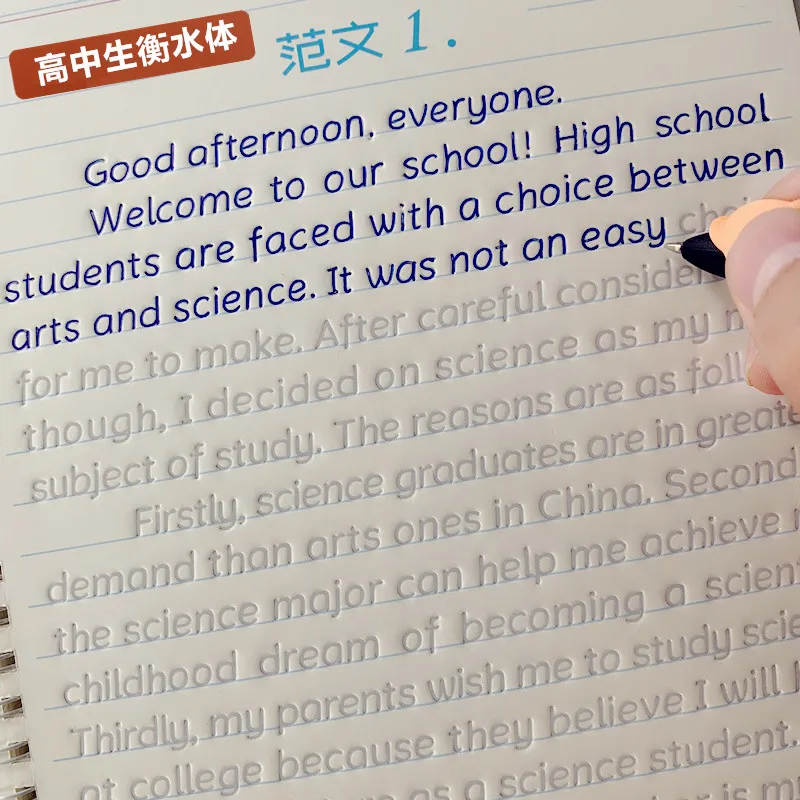 高中生衡水体
范文 1.
Good afternoon, everyone.
Welcome to our school! High school
students are faced with a choice between
arts and science. It was not an easy
for me to make. After careful
though, I decided on science as my
subject of study. The reasons are as
Firstly, science graduates are in
demand than arts ones in China.
the science major can help me achieve
childhood dream of becoming a
Thirdly, my parents wish me to study
at college because they believe I will
as a science student.
is